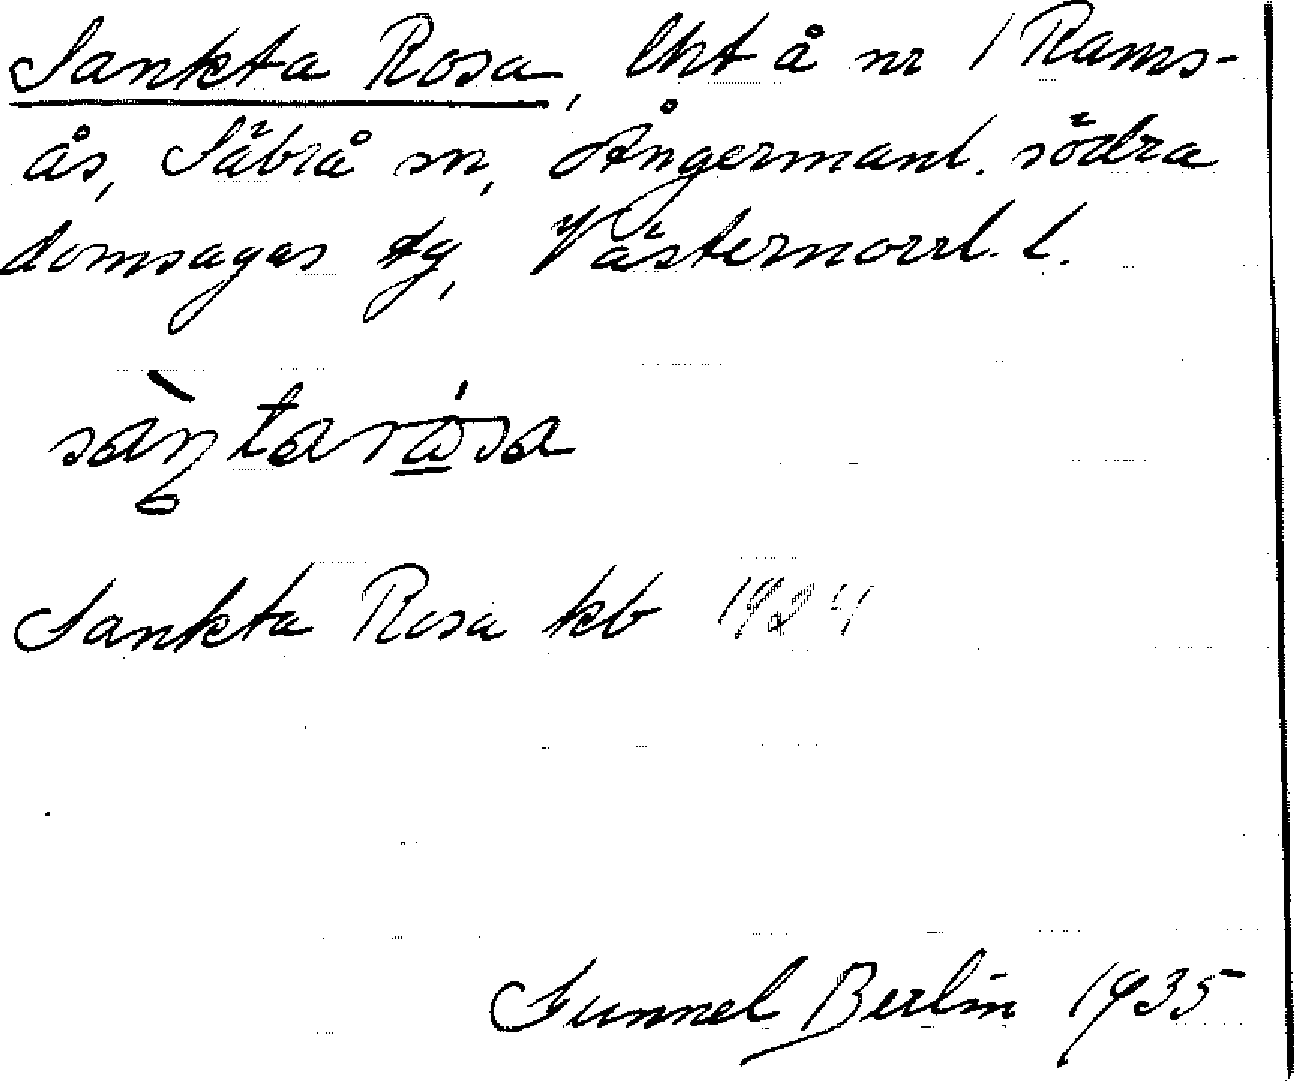 Sankta Rosa, lht å nr 1 Rams-
ås, Säbrå sn, Ångermanl. södra
domsagas tg, Västernorrl. l.
sàŋtarósa
Sankta Rosa kb 1924
Gunnel Berlin 1935